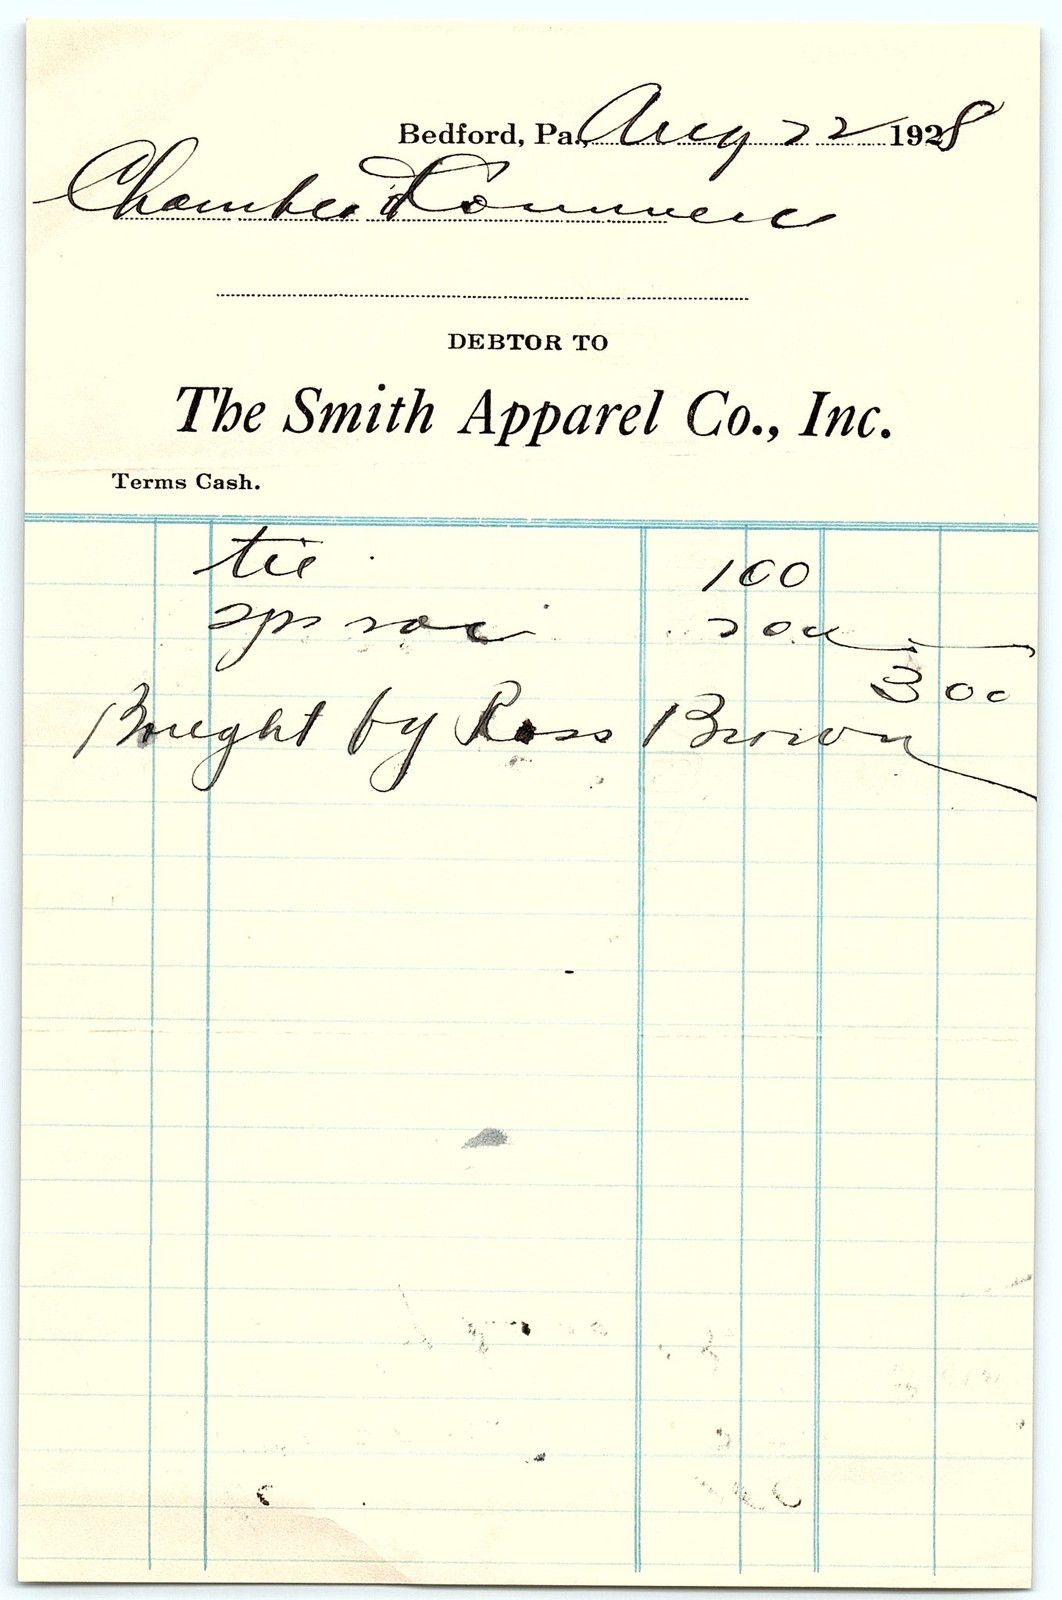 Bedford, Pa., Aug 22 1928
Chamber of Commerce
DEBTOR TO
The Smith Apparel Co., Inc.
Terms Cash.
tie 100
200
3 00
Bought by Ross Brown